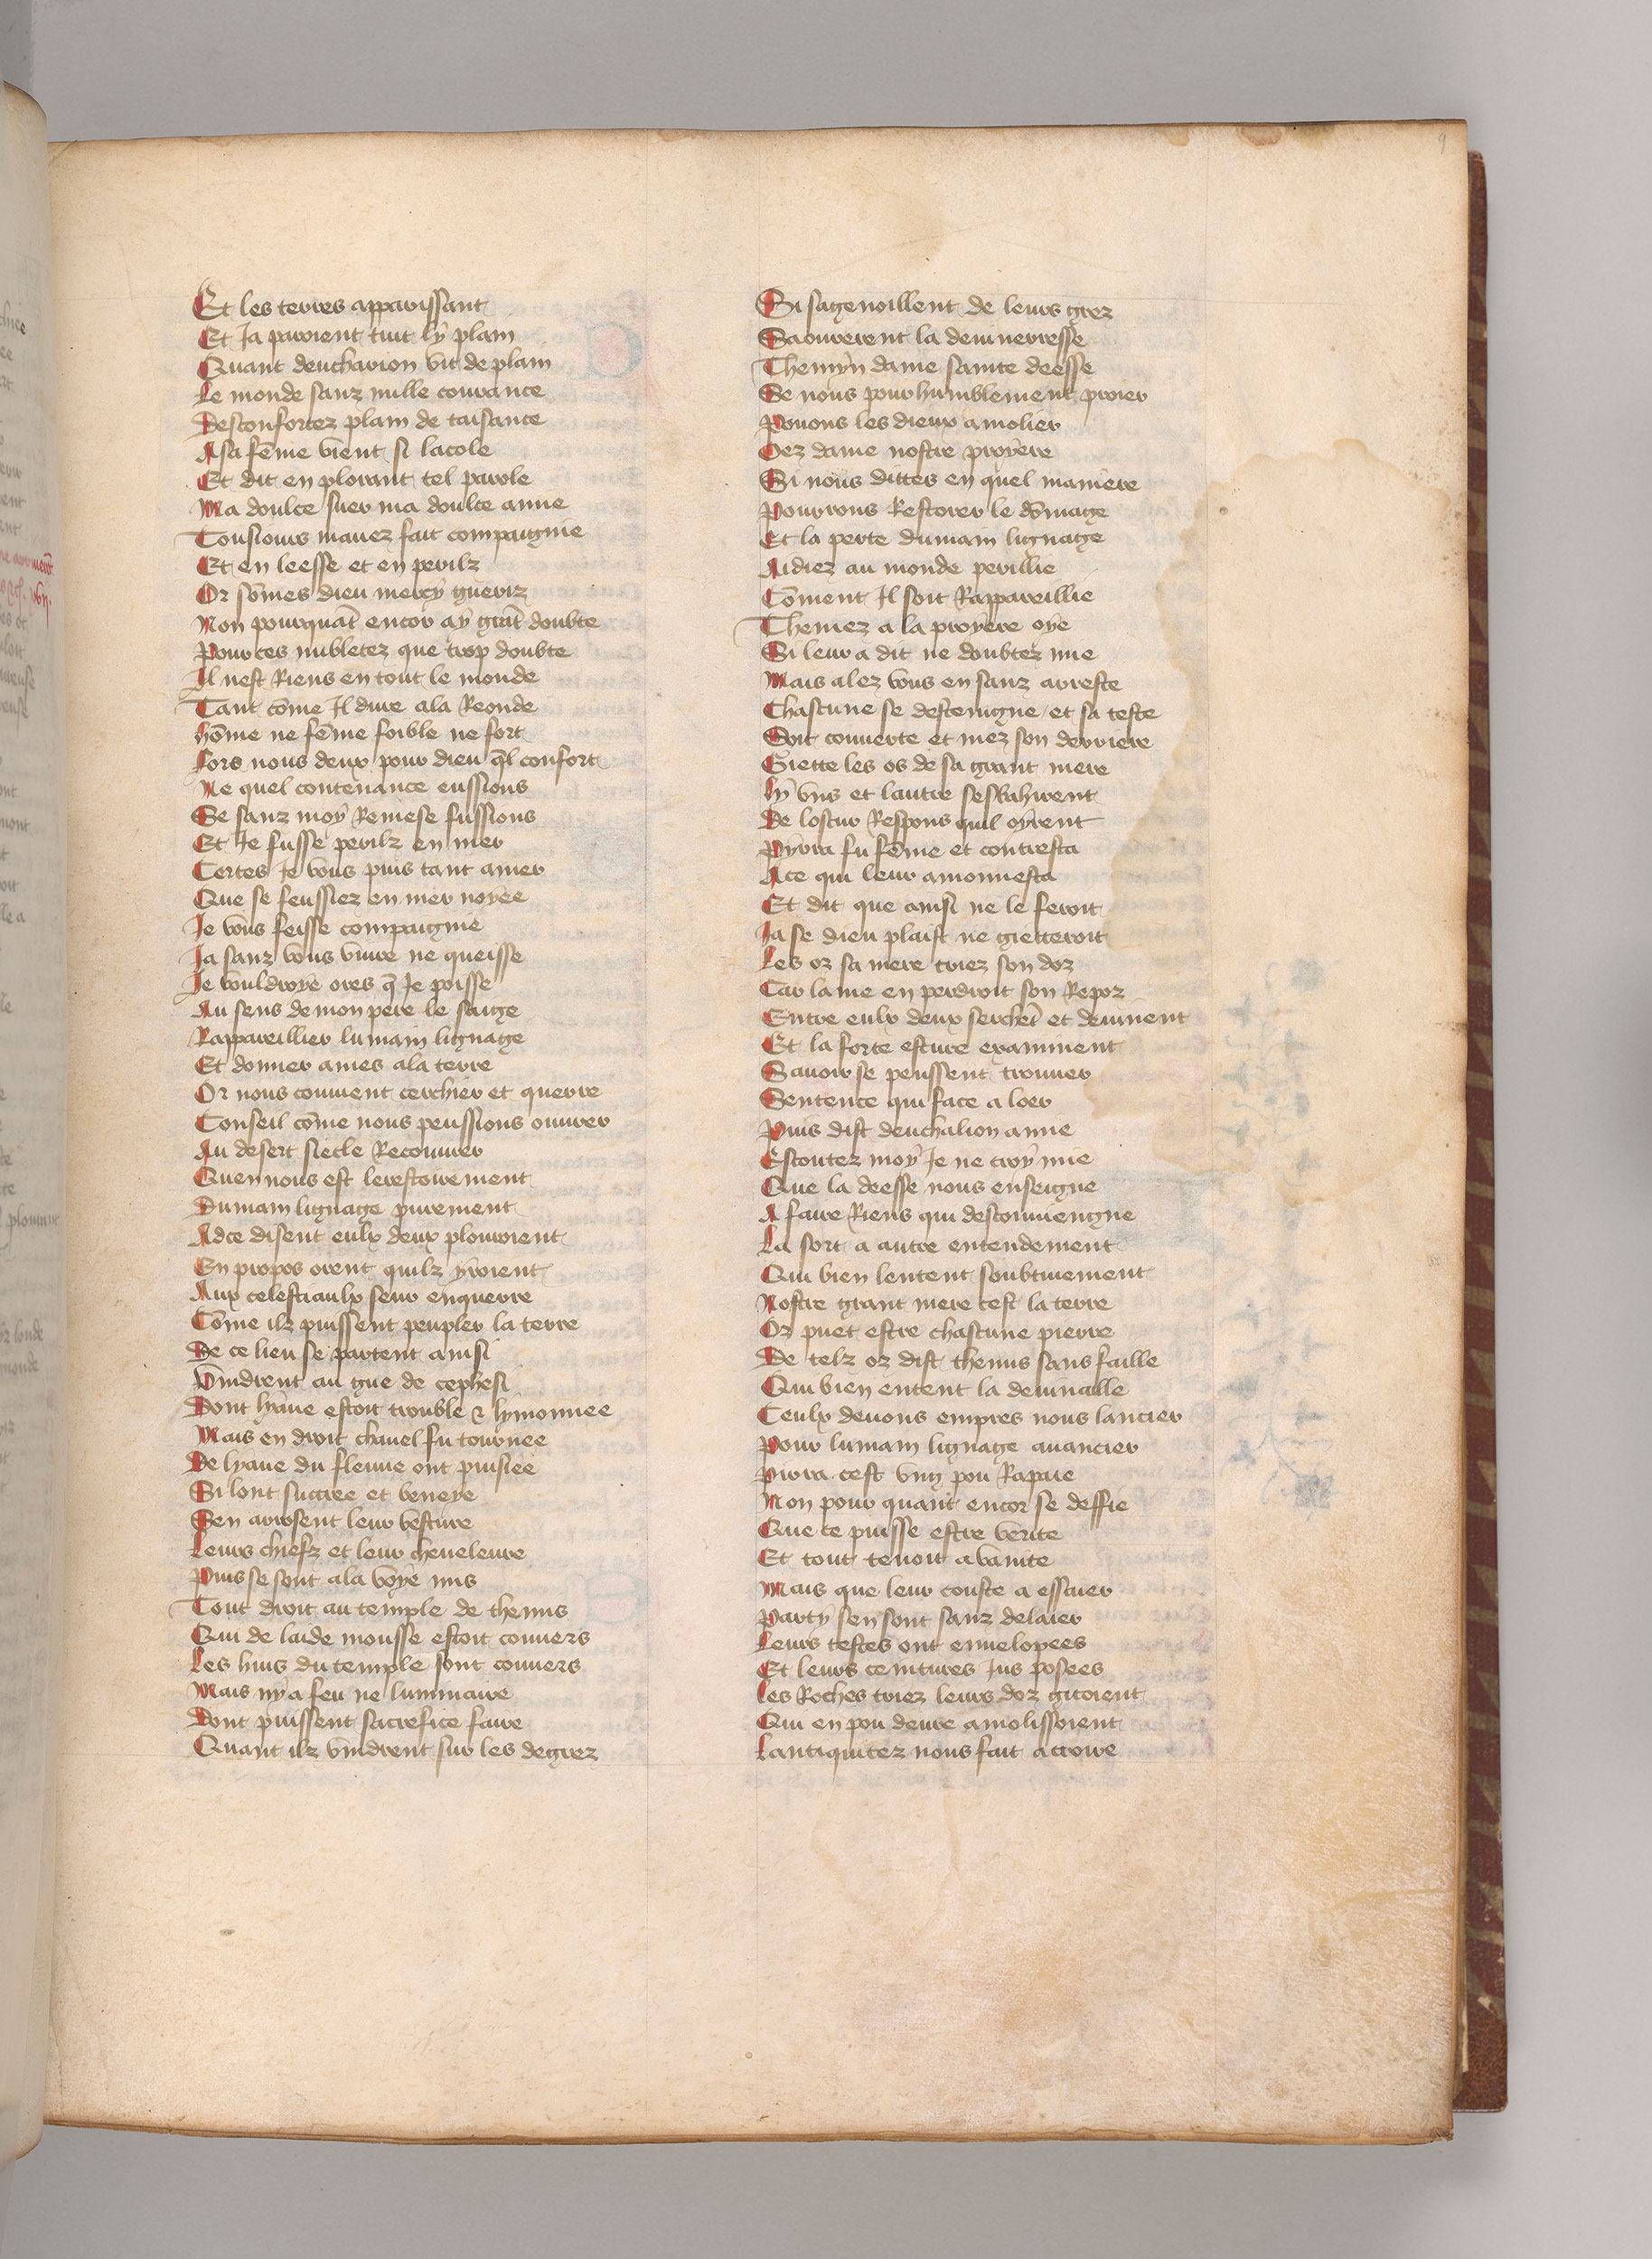 9
Et les terres apparissant
Et Ja paroient tuit ly plain
Quant deucharion vit de plain
Le monde sanz nulle courance
Desconfortez plain de taisance
A sa fe͞me vient si lacole
Et dit en plorant tel parole
Ma doulce suer ma doulce amie
Tousiours mauez fait compaignie
Et en leesse et en perilz
Or so͞mes dieu mercy gueriz
Non pourqua͞t encor ay gra͞t doubte
Pour ces nubletez que trop doubte
Il nest Riens en tout le monde
Tant co͞me Il dure a la Reonde
ho͞me ne fe͞me foible ne fort
Fors nous deux pour dieu q͞l confort
Ne quel contenance eussions
Se sanz moy Remese fussions
Et Je fusse perilz en mer
Certes Je vous puis tant amer
Que se feussiez en mer noyee
Je vous feisse compaignie
Ja sanz vous viure ne queisse
Je vouldroye ores q͞ Je poisse
Au sens de mon pere le saige
Rappareillier lumain lignage
Et donner ames a la terre
Or nous conuient cerchier et querre
Conseil co͞me nous peussions ouurer
Au desert siecle Recouurer
Quen nous est lerestorement
Dumain lignage purement
Adce disent eulx deux plouroient
En propos orent quilz yroient
Aux celestiaulx seur enquerre
Co͞me ilz puissent peupler la terre
De ce lieu se partent ainsi
Vindrent au gue de cephesi
Dont lyaue estoit trouble & lymonnee
Mais en droit chanel fu tournee
De lyaue du fleuue ont puisiee
Si lont sucree et beneye
Sen arrosent leur vesture
Leurs chiefz et leur cheueleure
Puis se sont a la voye mis
Tout droit au temple de themis
Qui de laide mousse estoit couuers
Les huis du temple sont ouuers
Mais ny a feu ne luminaire
Dont puissent sacrefice faire
Quant ilz vindrent sur les degrez
Si sagenoillent de leurs grez
Saourerent la deuinerresse
Themyn dame sainte deesse
Se nous pour humblement proier
Pouons les dieux amolier
Oez dame nostre proyere
Si nous dittes en quel maniere
Pourrons Restorer le do͞mage
Et la perte dumain lignage
Aidiez au monde perillie
Co͞ment Il soit Rappareillie
Themez a la proyere oye
Si leur a dit ne doubtez mie
Mais alez vous en sanz arreste
Chascune se desceingne et sa teste
Soit couuerte et mez son derriere
Giette les os de sa grant mere
Ly vns et lautre sesbahirent
De loscur Respons quil oyrent
Pyrra fu fe͞me et contresta
A ce qui leur amonnesta
Et dit que ainsi ne le feroit
Ja se dieu plaist ne gietteroit
Les oz sa mere triez son doz
Car lame en perdroit son Repoz
Entre eulx deux serche͞t et deuinent
Et la forte escure examinent
Sauoir se peussent trouuer
Sentence qui face a loer
Puis dist deuchalion amie
Escoutez moy Je ne croy mie
Que la deesse nous enseigne
A faire Riens qui desconuiengne
La sort a autre entendement
Qui bien lentent soubtiuement
Nostre grant mere cest la terre
Or puet estre chascune pierre
De telz oz dist themis sans faille
Qui bien entent la deuinaille
Ceulx deuons empres nous lancier
Pour lumain lignage auancier
Pirra cest vng pou Rapaie
Non pour quant encor se deffie
Que ce puisse estre verite
Et tout tenoit a vanite
Mais que leur couste a essaier
Party sen sont sanz delaier
Leurs testes ont enuelopees
Et leurs ceintures Jus posees
Les Roches triez leurs doz gitoient
Qui en pou deure amolissoient
Lantiquitez nous fait acroire